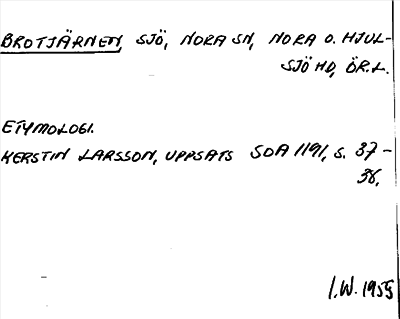 BROTJÄRNEN, SJÖ, NORA SN, NORA O. HJUL-
SJÖ HD, ÖR.L.
ETYMOLOGI.
KERSTIN LARSSON, UPPSATS SOA 1191, S. 37-
38.
I.W. 1955